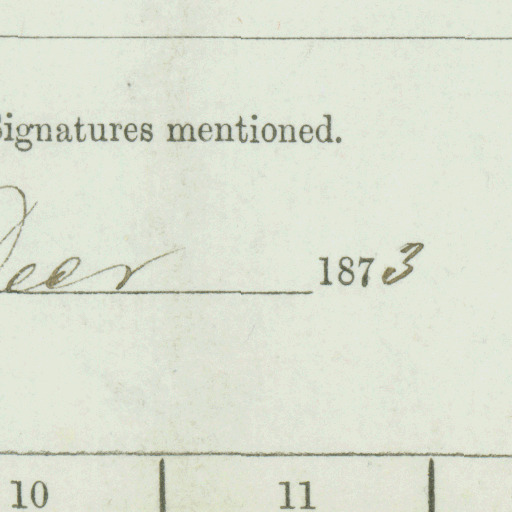 Signatures mentioned.
Decr 1873
10 11